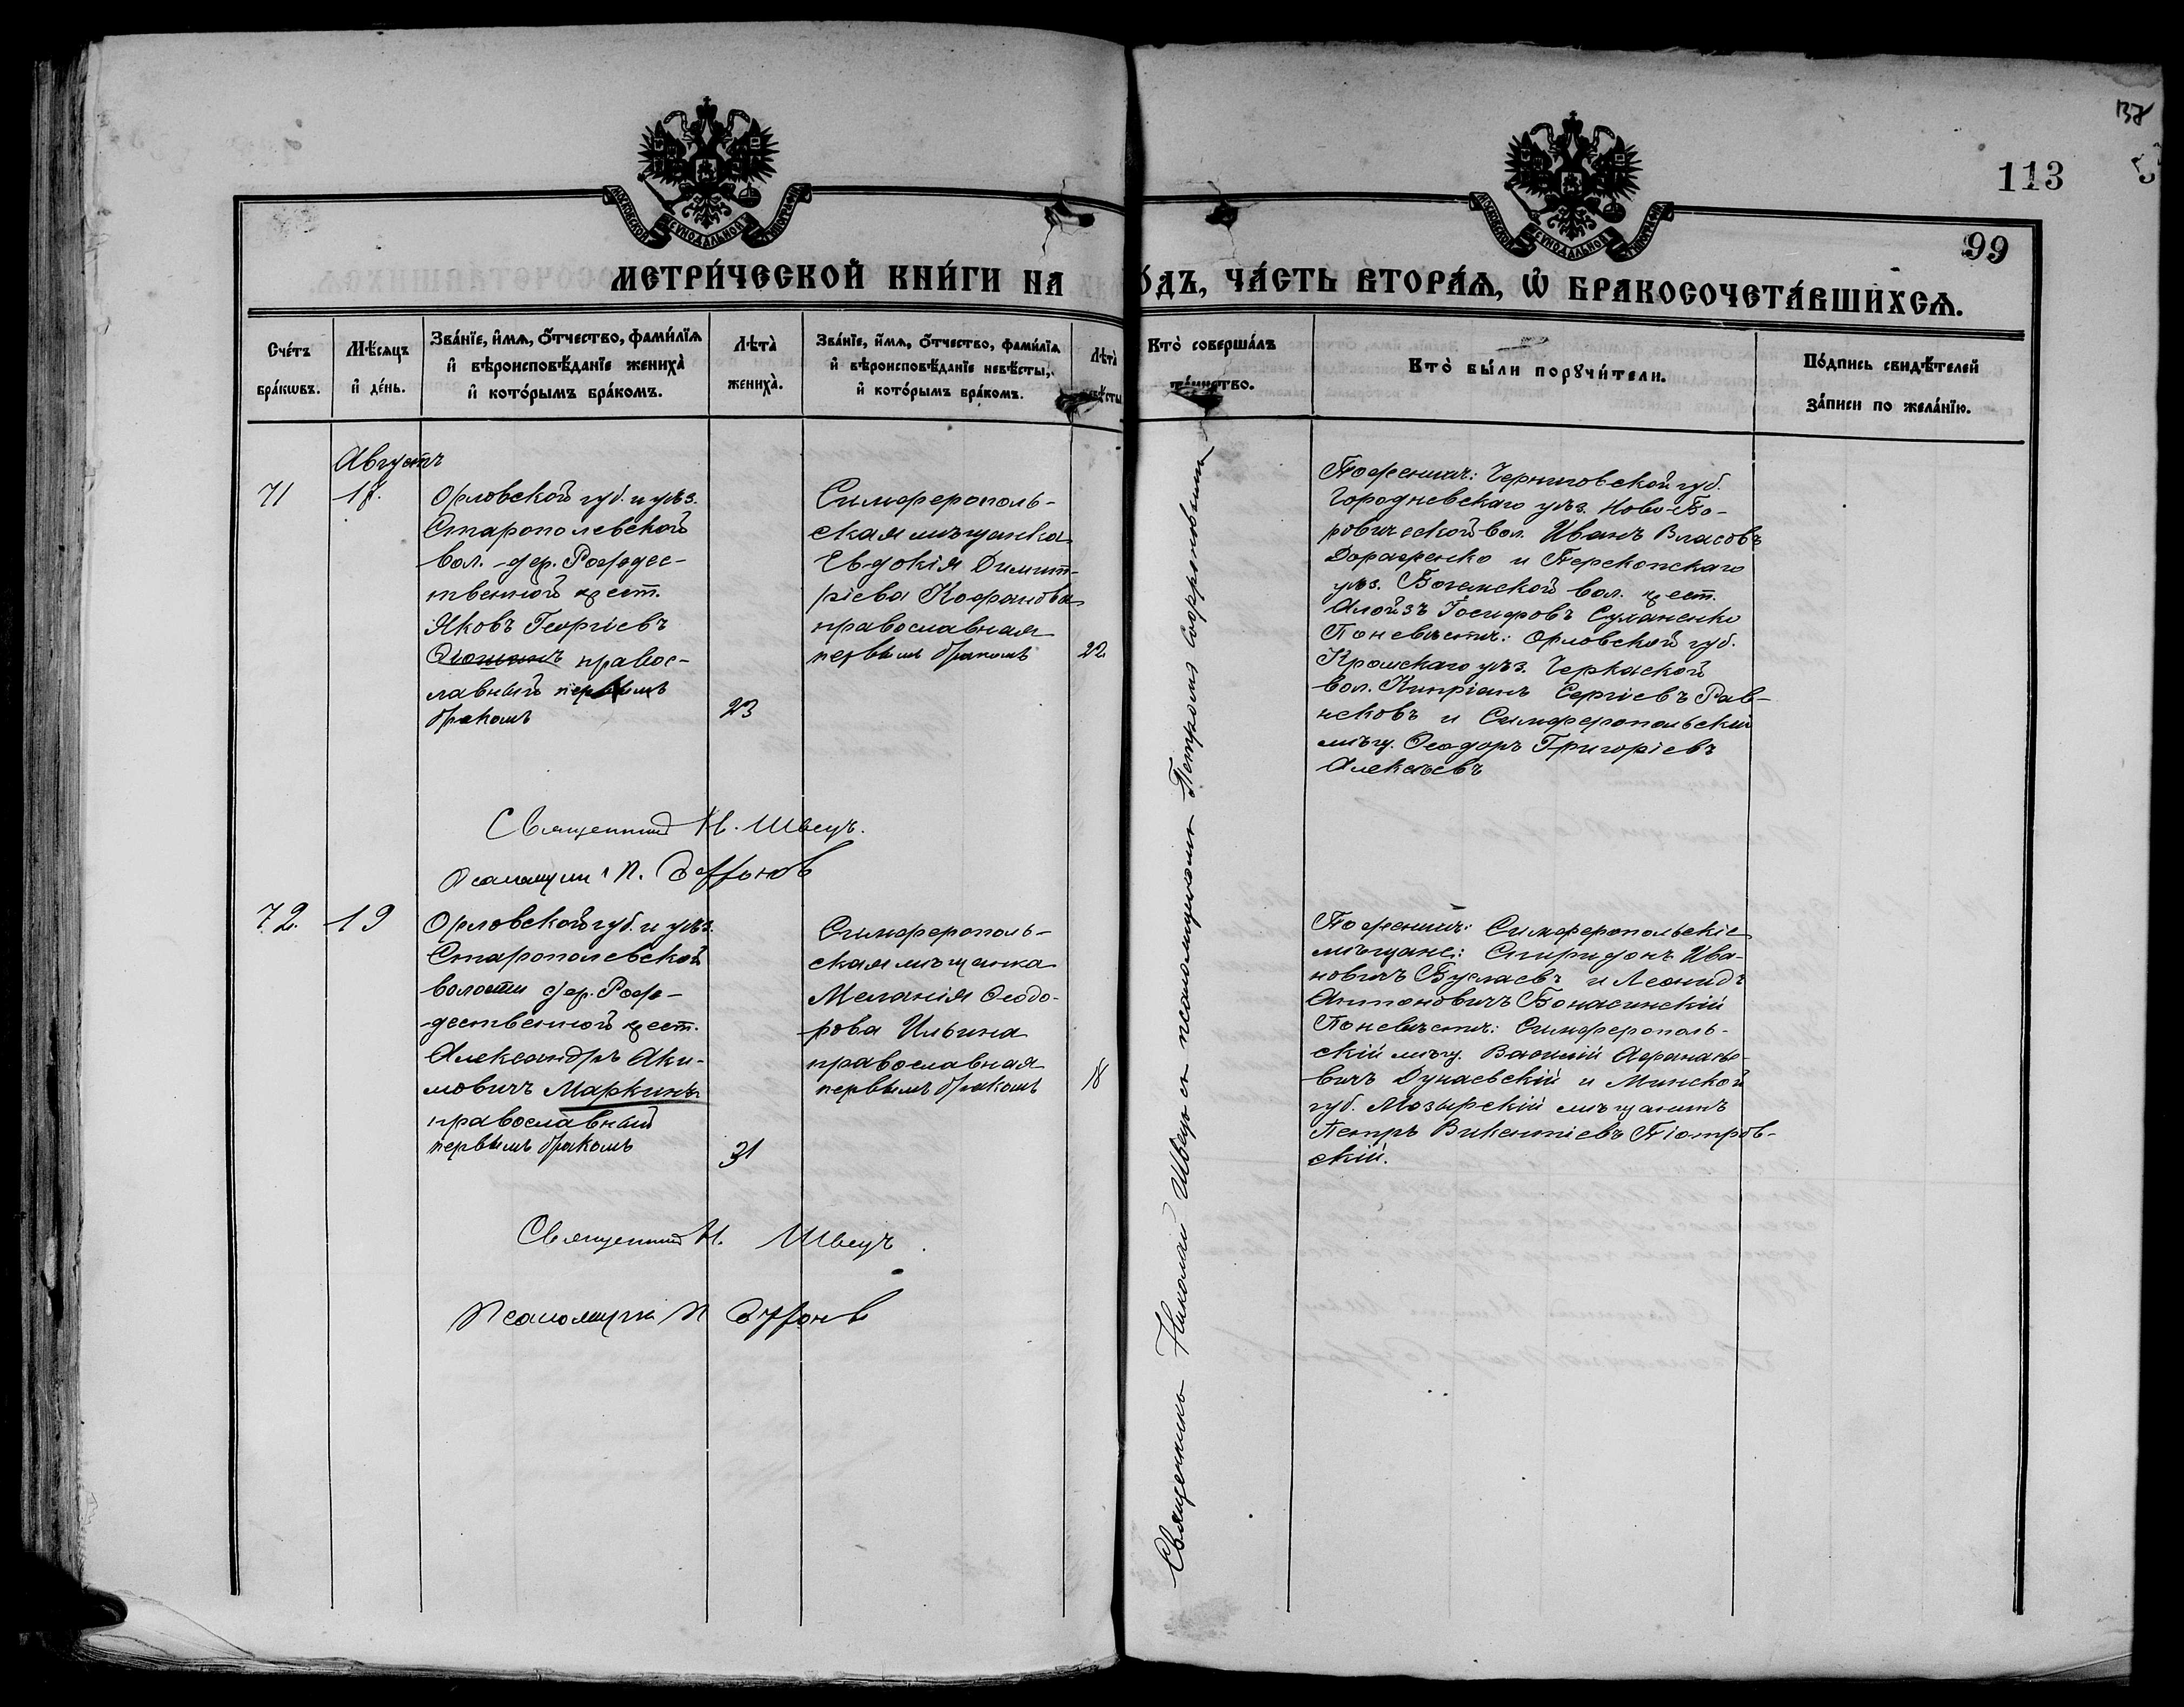 138
113
99
МОСКОВСКОЙ СѴНОДАЛЬНОЙ ТИПОГРАФІИ
МОСКОВСКОЙ СѴНОДАЛЬНОЙ ТИПОГРАФІИ
МЕТРИ́ЧЕСКОЙ КНИ́ГИ НА
О́ДЪ, ЧА́СТЬ ВТОРА́Ѧ, Ѽ БРАКОСОЧЕТА́ВШИХСѦ.
Сче́тъ
бра́кѡвъ.
Мѣ́сѧцъ
и҆ де́нь.
Зва́нїе, и҆́мѧ, ѻ҆́тчество, фами́лїѧ
и҆ вѣроисповѣ́данїе жениха̀
и҆ кото́рымъ бра́комъ.
Лѣта̀
жениха̀.
Зва́нїе, и҆́мѧ, ѻ҆́тчество, фами́лїѧ
и҆ вѣроисповѣ́данїе невѣ́сты,
и҆ кото́рымъ бра́комъ.
Лѣта̀
невѣ́сты
Кто̀ соверша́лъ
та́инство.
Кто̀ бы́ли порꙋчи́тели.
По́дпись свидѣ́телей
за́писи по жела́нїю.
Августъ
71
18.
Орловской губ. и уѣз.
Старополевской
вол. дер. Рождес-
твенной крест.
Яковъ Георгіевъ
правос-
лавный первымъ
бракомъ
23
Симферополь-
ская мѣщанка
Евдокія Димит-
ріева Кофанова
православная
первымъ бракомъ
22
По женихѣ: Черниговской губ.
Городневскаго уѣз. Ново-Бо-
ровичской вол. Иванъ Власовъ
Дораженко и Перекопскаго
уѣз. Богемской вол. крест.
Алойзъ Іосифовъ
По невѣстѣ: Орловской губ.
Кромскаго уѣз. Черкаской
вол. Кипріанъ Сергіевъ Рав-
нсковъ и Симферопольскій
мѣщ. Ѳеодоръ Григоріевъ
Алексѣевъ
Священникъ Н. Швецъ.
Псаломщикъ П. Софроновъ
72.
19
Орловской губ. и уѣз.
Старополевской
волости дер. Рож-
дественной крест.
Александръ Аки-
мовичъ Маркинъ
православный
первымъ бракомъ
31
Симферополь-
ская мѣщанка
Меланія Ѳеодо-
рова Ильина
православная
первымъ бракомъ
18
По женихѣ: Симферопольскіе
мѣщане: Спиридонъ Ива-
новичъ Буслаевъ и Леонидъ
Антоновичъ Бонасинскій
По невѣстѣ: Симферополь-
скій мѣщ. Василій Афанасье-
вичъ Дунаевскій и Минской
губ. Мозырскій мѣщанинъ
Петръ Викентіевъ Піотров-
скій.
Священникъ Н. Швецъ.
Псаломщикъ П Софроновъ
Священникъ Николай Швецъ съ псаломщикомъ Петромъ Софроновымъ